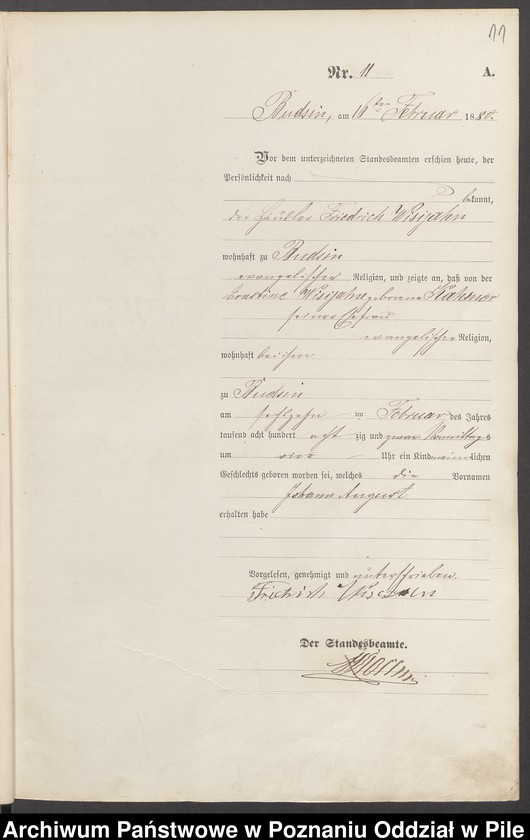 11
Nr. 11 A.
Budsin, am 16ten Februar 1880.
Vor dem unterzeichneten Standesbeamten erschien heute, der
Persönlichkeit nach
bekannt,
der Häusler Friedrich Wisijahn
wohnhaft zu Budsin
evangelischer Religion, und zeigte an, daß von der
Ernstine Wisijahn geborene
seiner Ehefrau
evangelischer Religion,
wohnhaft bei ihm
zu Budsin
am sechzehn ten Februar des Jahres
tausend acht hundert acht zig und zwar Vormittags
um Uhr ein Kind männlichen
Geschlechts geboren worden sei, welches die Vornamen
Johann August
erhalten habe
Vorgelesen, genehmigt und unterschrieben.
Friedrich
Der Standesbeamte.
Archiwum Państwowe w Poznaniu Oddział w Pile